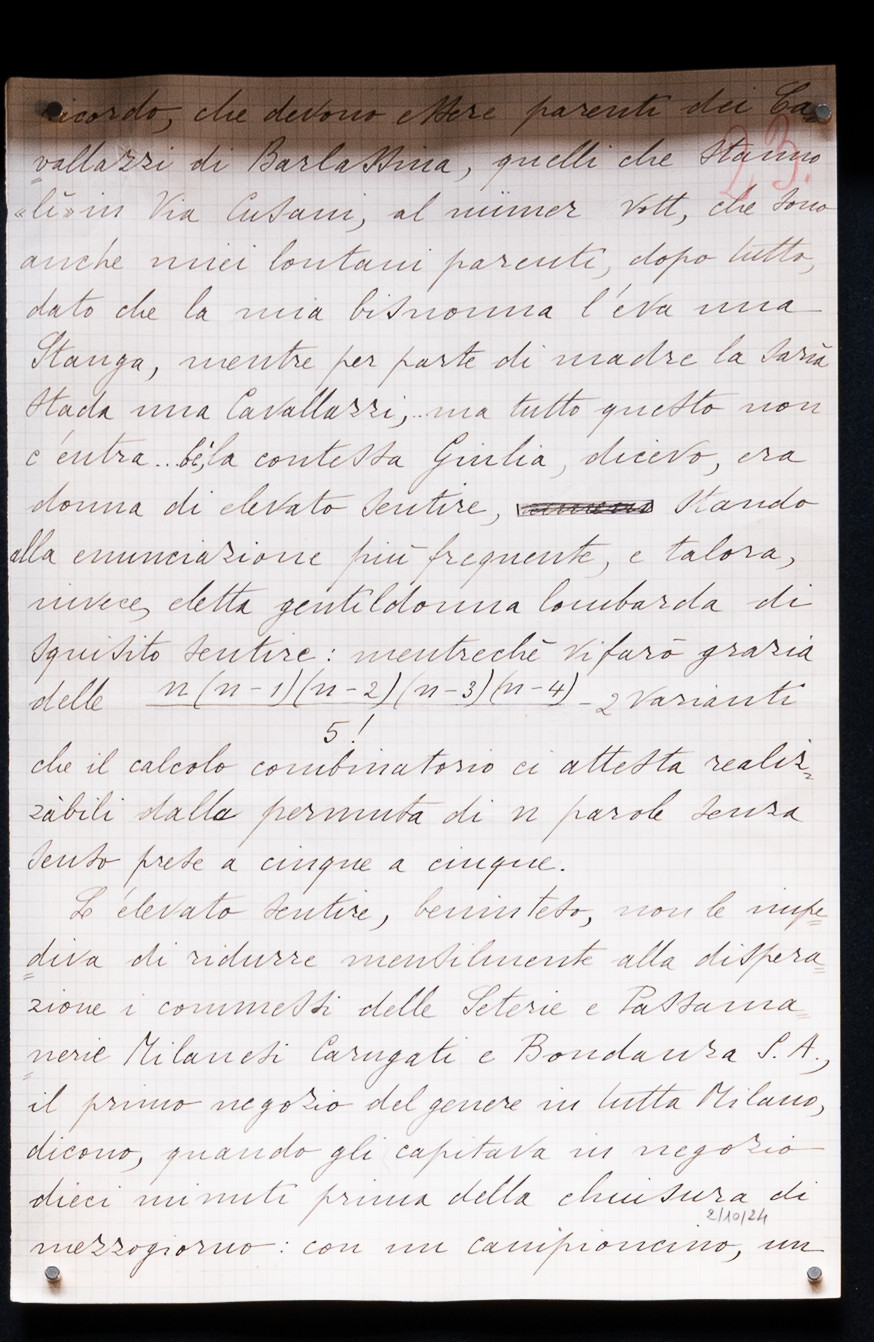 ricordo, che devono essere parenti dei Ca=
23.
vallazzi di Barlassina, quelli che stanno
«lì» in Via Cusani, al nümer vott, che sono
anche miei lontani parenti, dopo tutto,
dato che la mia bisnonna l'éva una
Stanga, mentre per parte di madre la saria
stada una Cavallazzi,.. ma tutto questo non
c'entra... bè, la contessa Giulia, dicevo, era
donna di elevato sentire, stando
alla enunciazione più frequente, e talora,
invece, detta gentildonna lombarda di
squisito sentire: mentreché vi farò grazia
delle n(n-1)(n-2)(n-3)(n-4)/5! - 2 varianti
che il calcolo combinatorio ci attesta realiz=
zàbili dalla permuta di n parole senza
senso prese a cinque a cinque.
L'elevato sentire, beninteso, non le impe=
diva di ridurre mensilmente alla dispera=
zione i commessi delle Seterie e Passama=
nerie Milanesi Carugati e Bondanza S. A.,
il primo negozio del genere in tutta Milano,
dicono, quando gli capitava in negozio
dieci minuti prima della chiusura di
2/10/24
mezzogiorno: con un campioncino, un